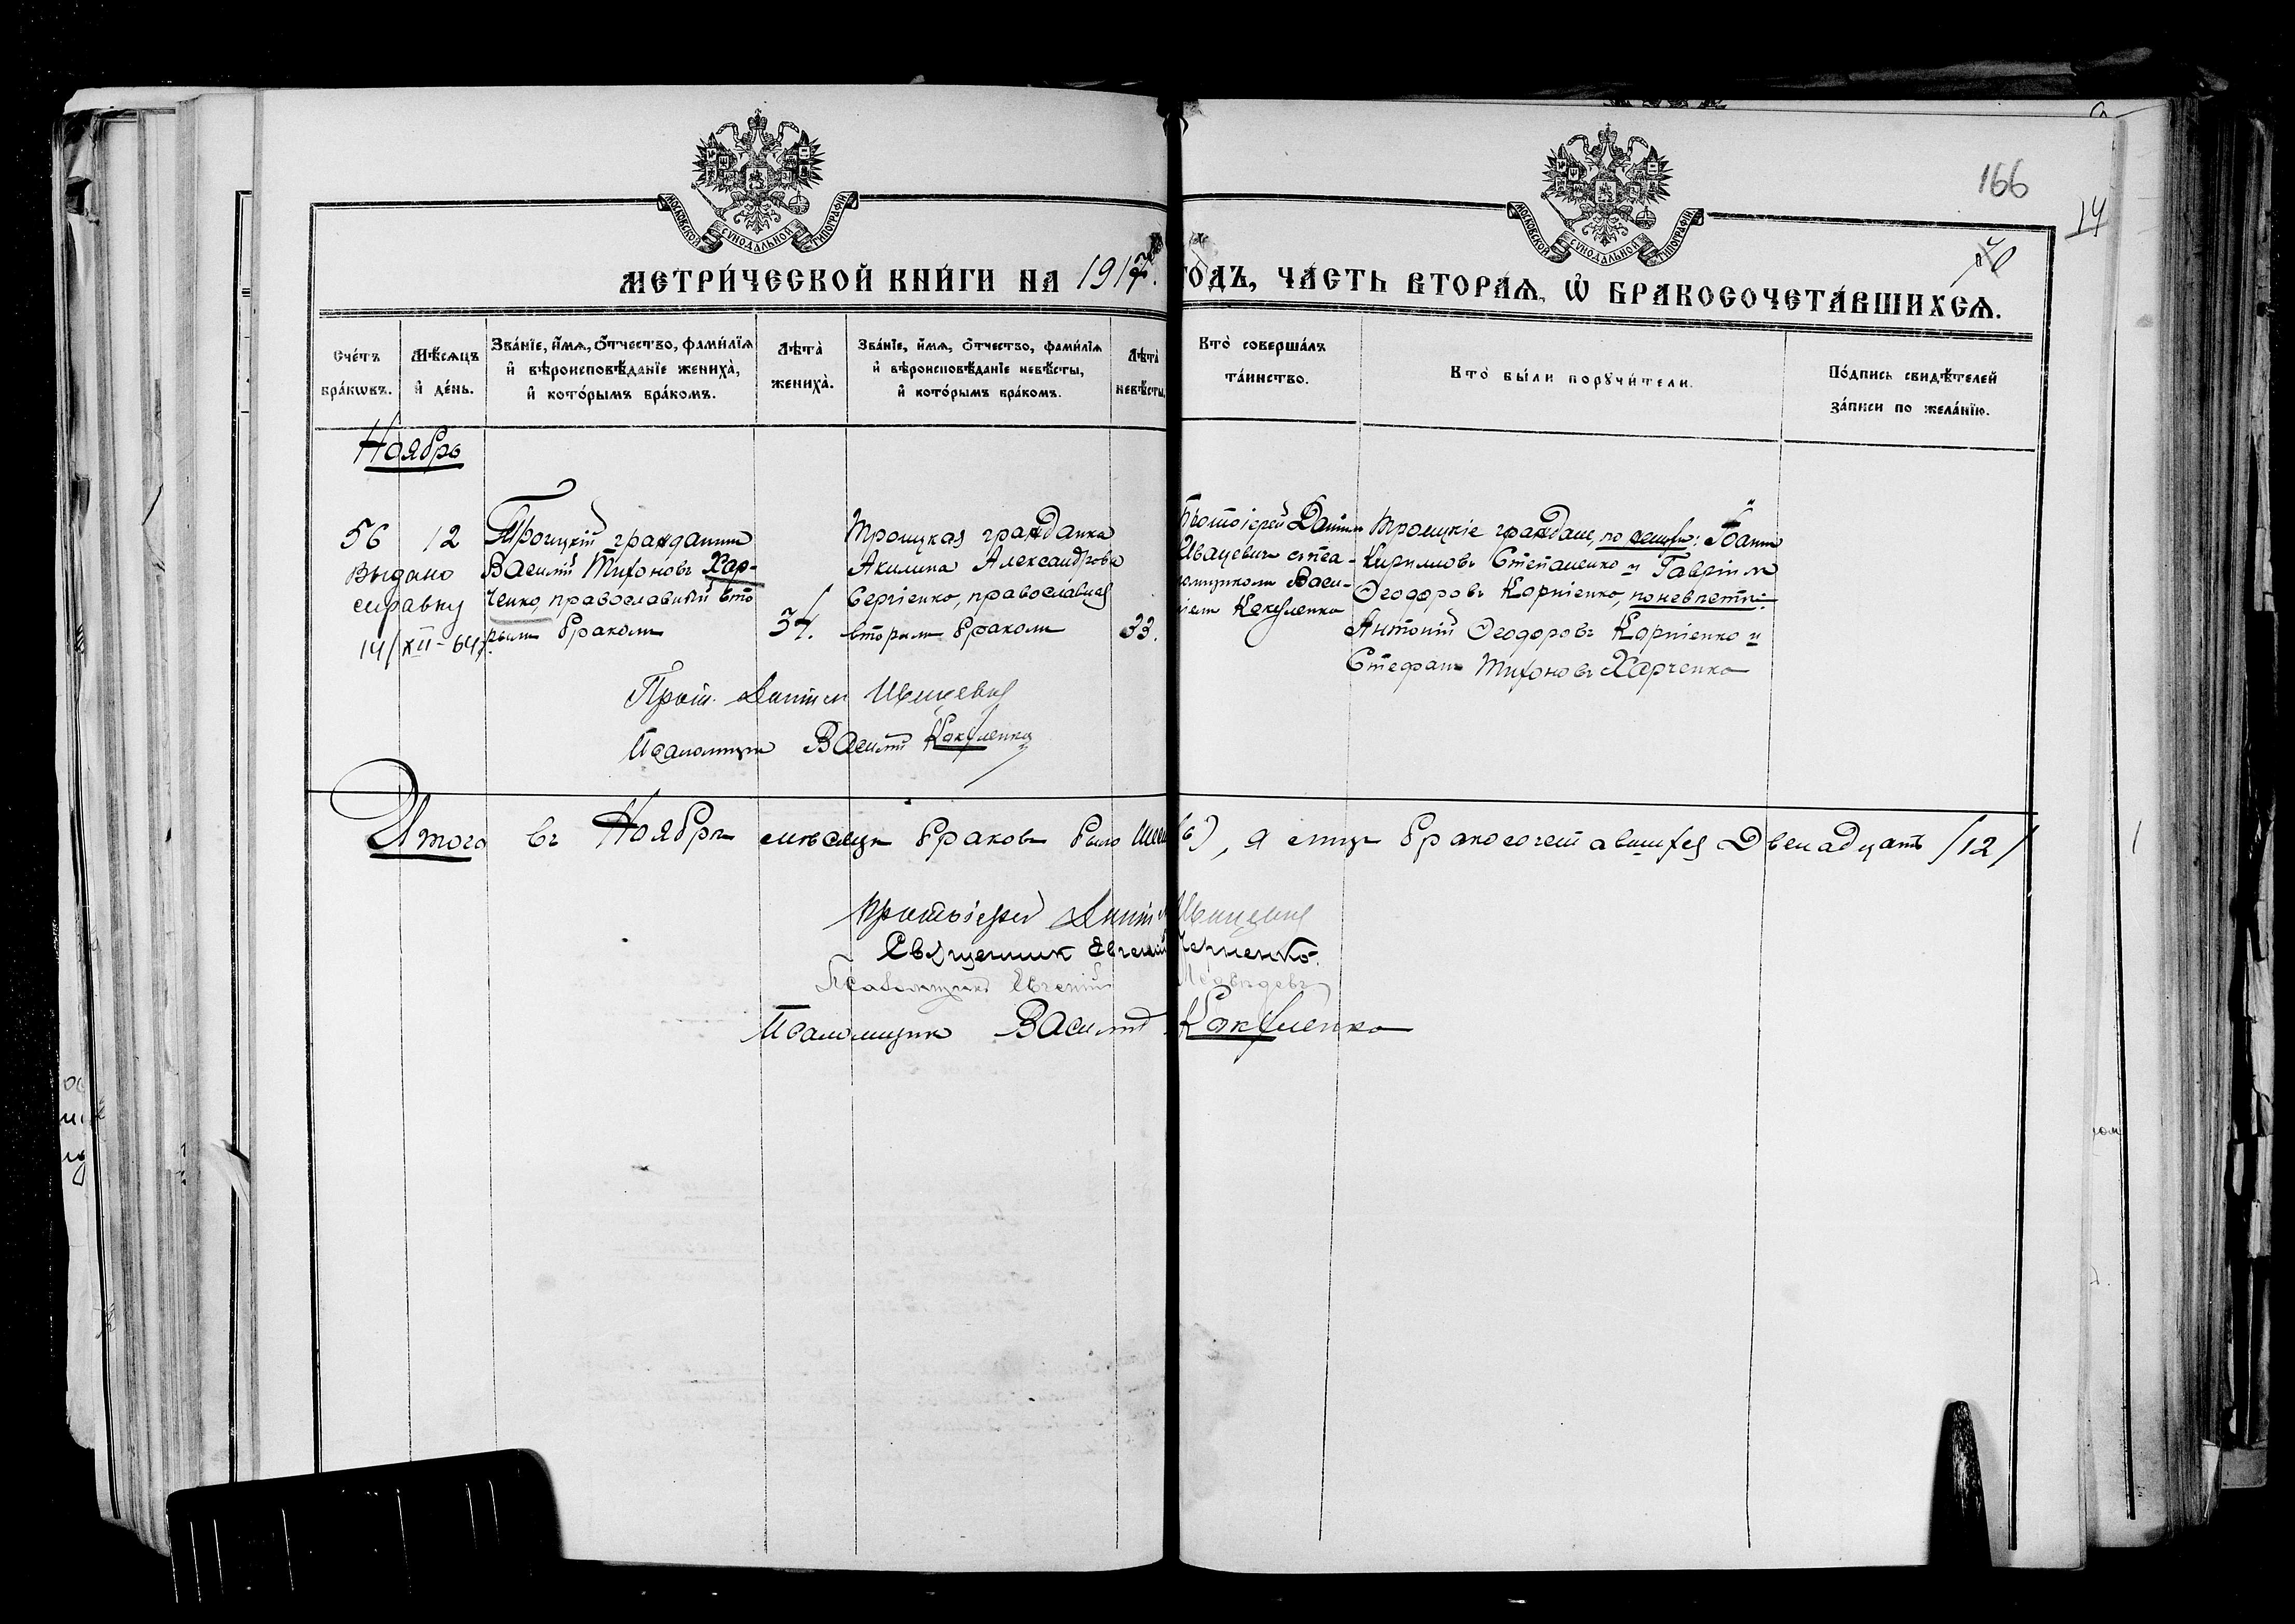 166
14
70
МОСКОВСКОЙ СѴНОДАЛЬНОЙ ТИПОГРАФІИ
МОСКОВСКОЙ СѴНОДАЛЬНОЙ ТИПОГРАФІИ
МЕТРИ́ЧЕСКОЙ КНИ́ГИ НА 1917
ГОДЪ, ЧА́СТЬ ВТОРА́Я, Ѡ БРАКОСОЧЕТА́ВШИХСЯ.
Сче́тъ бра́кѡвъ.
Мѣ́сяцъ и де́нь.
Зва́нїе, и́мя, о́тчество, фами́лїя и вѣроисповѣ́данїе жениха̀, и кото́рымъ бра́комъ.
Лѣта̀ жениха̀.
Зва́нїе, и́мя, о́тчество, фами́лїя и вѣроисповѣ́данїе невѣ́сты, и кото́рымъ бра́комъ.
Лѣта̀ невѣ́сты.
Кто̀ соверша́лъ та́инство.
Кто̀ бы́ли порꙋчи́тели.
По́дпись свидѣ́телей за́писи по жела́нїю.
Ноябрь
56
12
Выдано
справку
14/XII-64
Троицкій гражданинъ
Василій Тихоновъ Хар-
ченко, православный вто
рымъ бракомъ
37.
Троицкая гражданка
Акилина Александрова
Сергіенко, православная
вторымъ бракомъ
33.
Протоіерей Даніилъ
Ивацевичъ съ пса-
ломщикомъ Васи-
ліемъ Кокуленко
Троицкіе граждане, по женихѣ: Іоаннъ
Кирилловъ Степаненко и Гавріилъ
Ѳеодоровъ Корніенко, по невѣстѣ:
Антоній Ѳеодоровъ Корніенко и
Стефанъ Тихоновъ Харченко
Прот. Даніилъ Ивацевичъ
Псаломщикъ Василій Кокуленко
Итого въ Ноябрѣ мѣсяцѣ браковъ было 6), а лицъ бракосочетавшихся Двенадцать /12/
Протоіерей Даніилъ Ивацевичъ
Священник Евгеній Черненко.
Псаломщикъ Евгеній Медведевъ
Псаломщикъ Василій Кокуленко